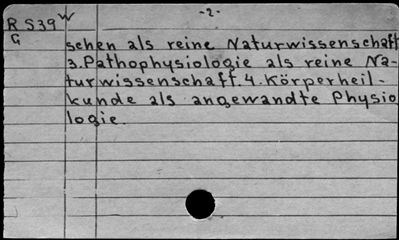 -2-
R S39 W
G
sehen als reine Naturwissenschaft
3. Pathophysiologie als reine Na-
turwissenschaft. 4. Körperheil-
kunde als angewandte Physio
logie.